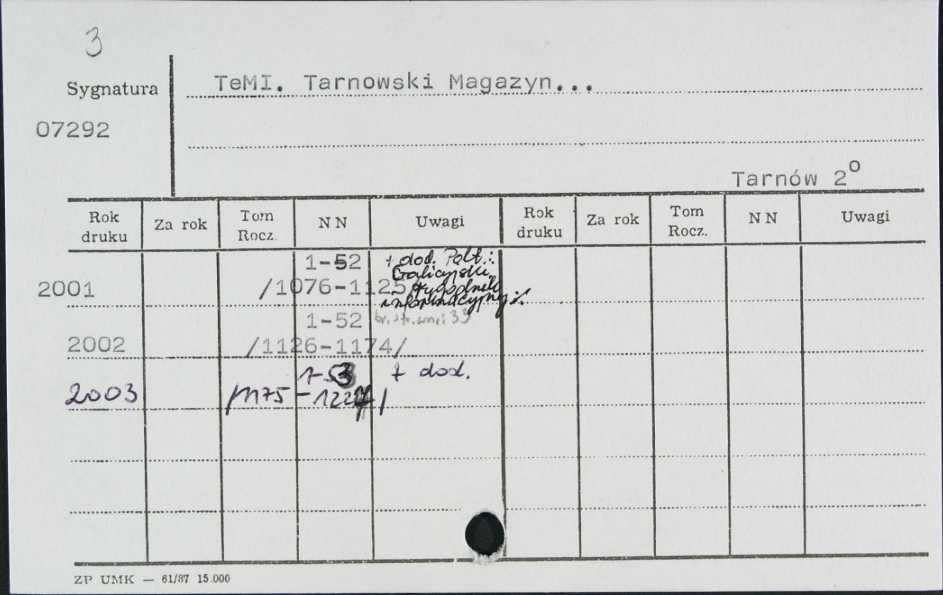 3
Sygnatura TeMI. Tarnowski Magazyn...
07292
Tarnów 2º
Rok druku Za rok Tom Rocz. N N Uwagi Rok druku Za rok Tom Rocz. N N Uwagi
1-52 + dod.
Galicyjski
2001 /1076-1125 tygodnik
informacyjny
1-52 33
2002 /1126-1174/
1-53 + dod.
2003 /1175-1227/
ZP UMK — 61/87 15.000